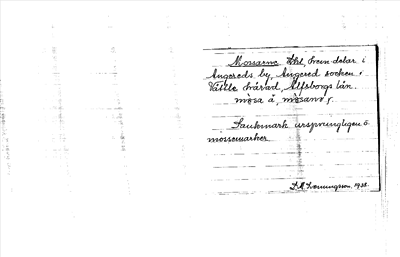 Mossarne Åkl, Fven delar i
Angereds by, Angered socken,
Vättle härad, Älfsborgs län.
mòsa å, mòsanə,
Sankmark ursprungligen o
mossemarker
1938.